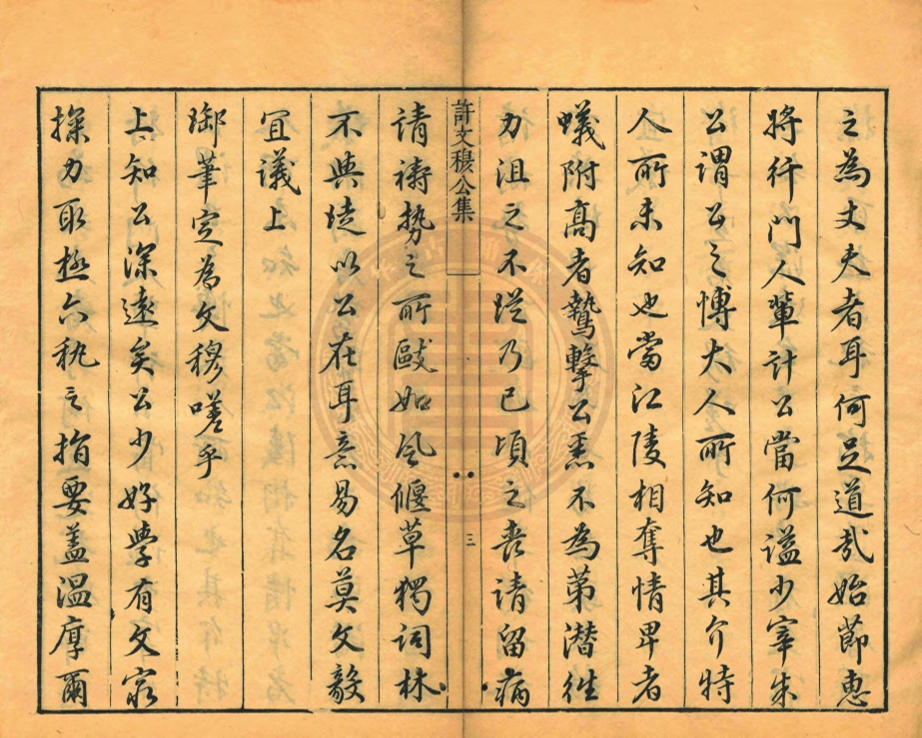 之為丈夫者耳何足道哉始節惠
將行門人輩計公當何謚少宰朱
公謂公之慱大人所知也其介特
人所未知也當江陵相奪情畀者
蟻附高者鷙擊公悉不為第潛徃
力沮之不從乃已頃之喪請留病
許文穆公集
三
請禱勢之所敺如風偃草獨詞林
不與㒰以公在耳意易名莫文毅
宜議上
御筆定為文穆嗟乎
上知公深遠矣公少好學有文宷
操力取極六執之指要盖溫厚爾